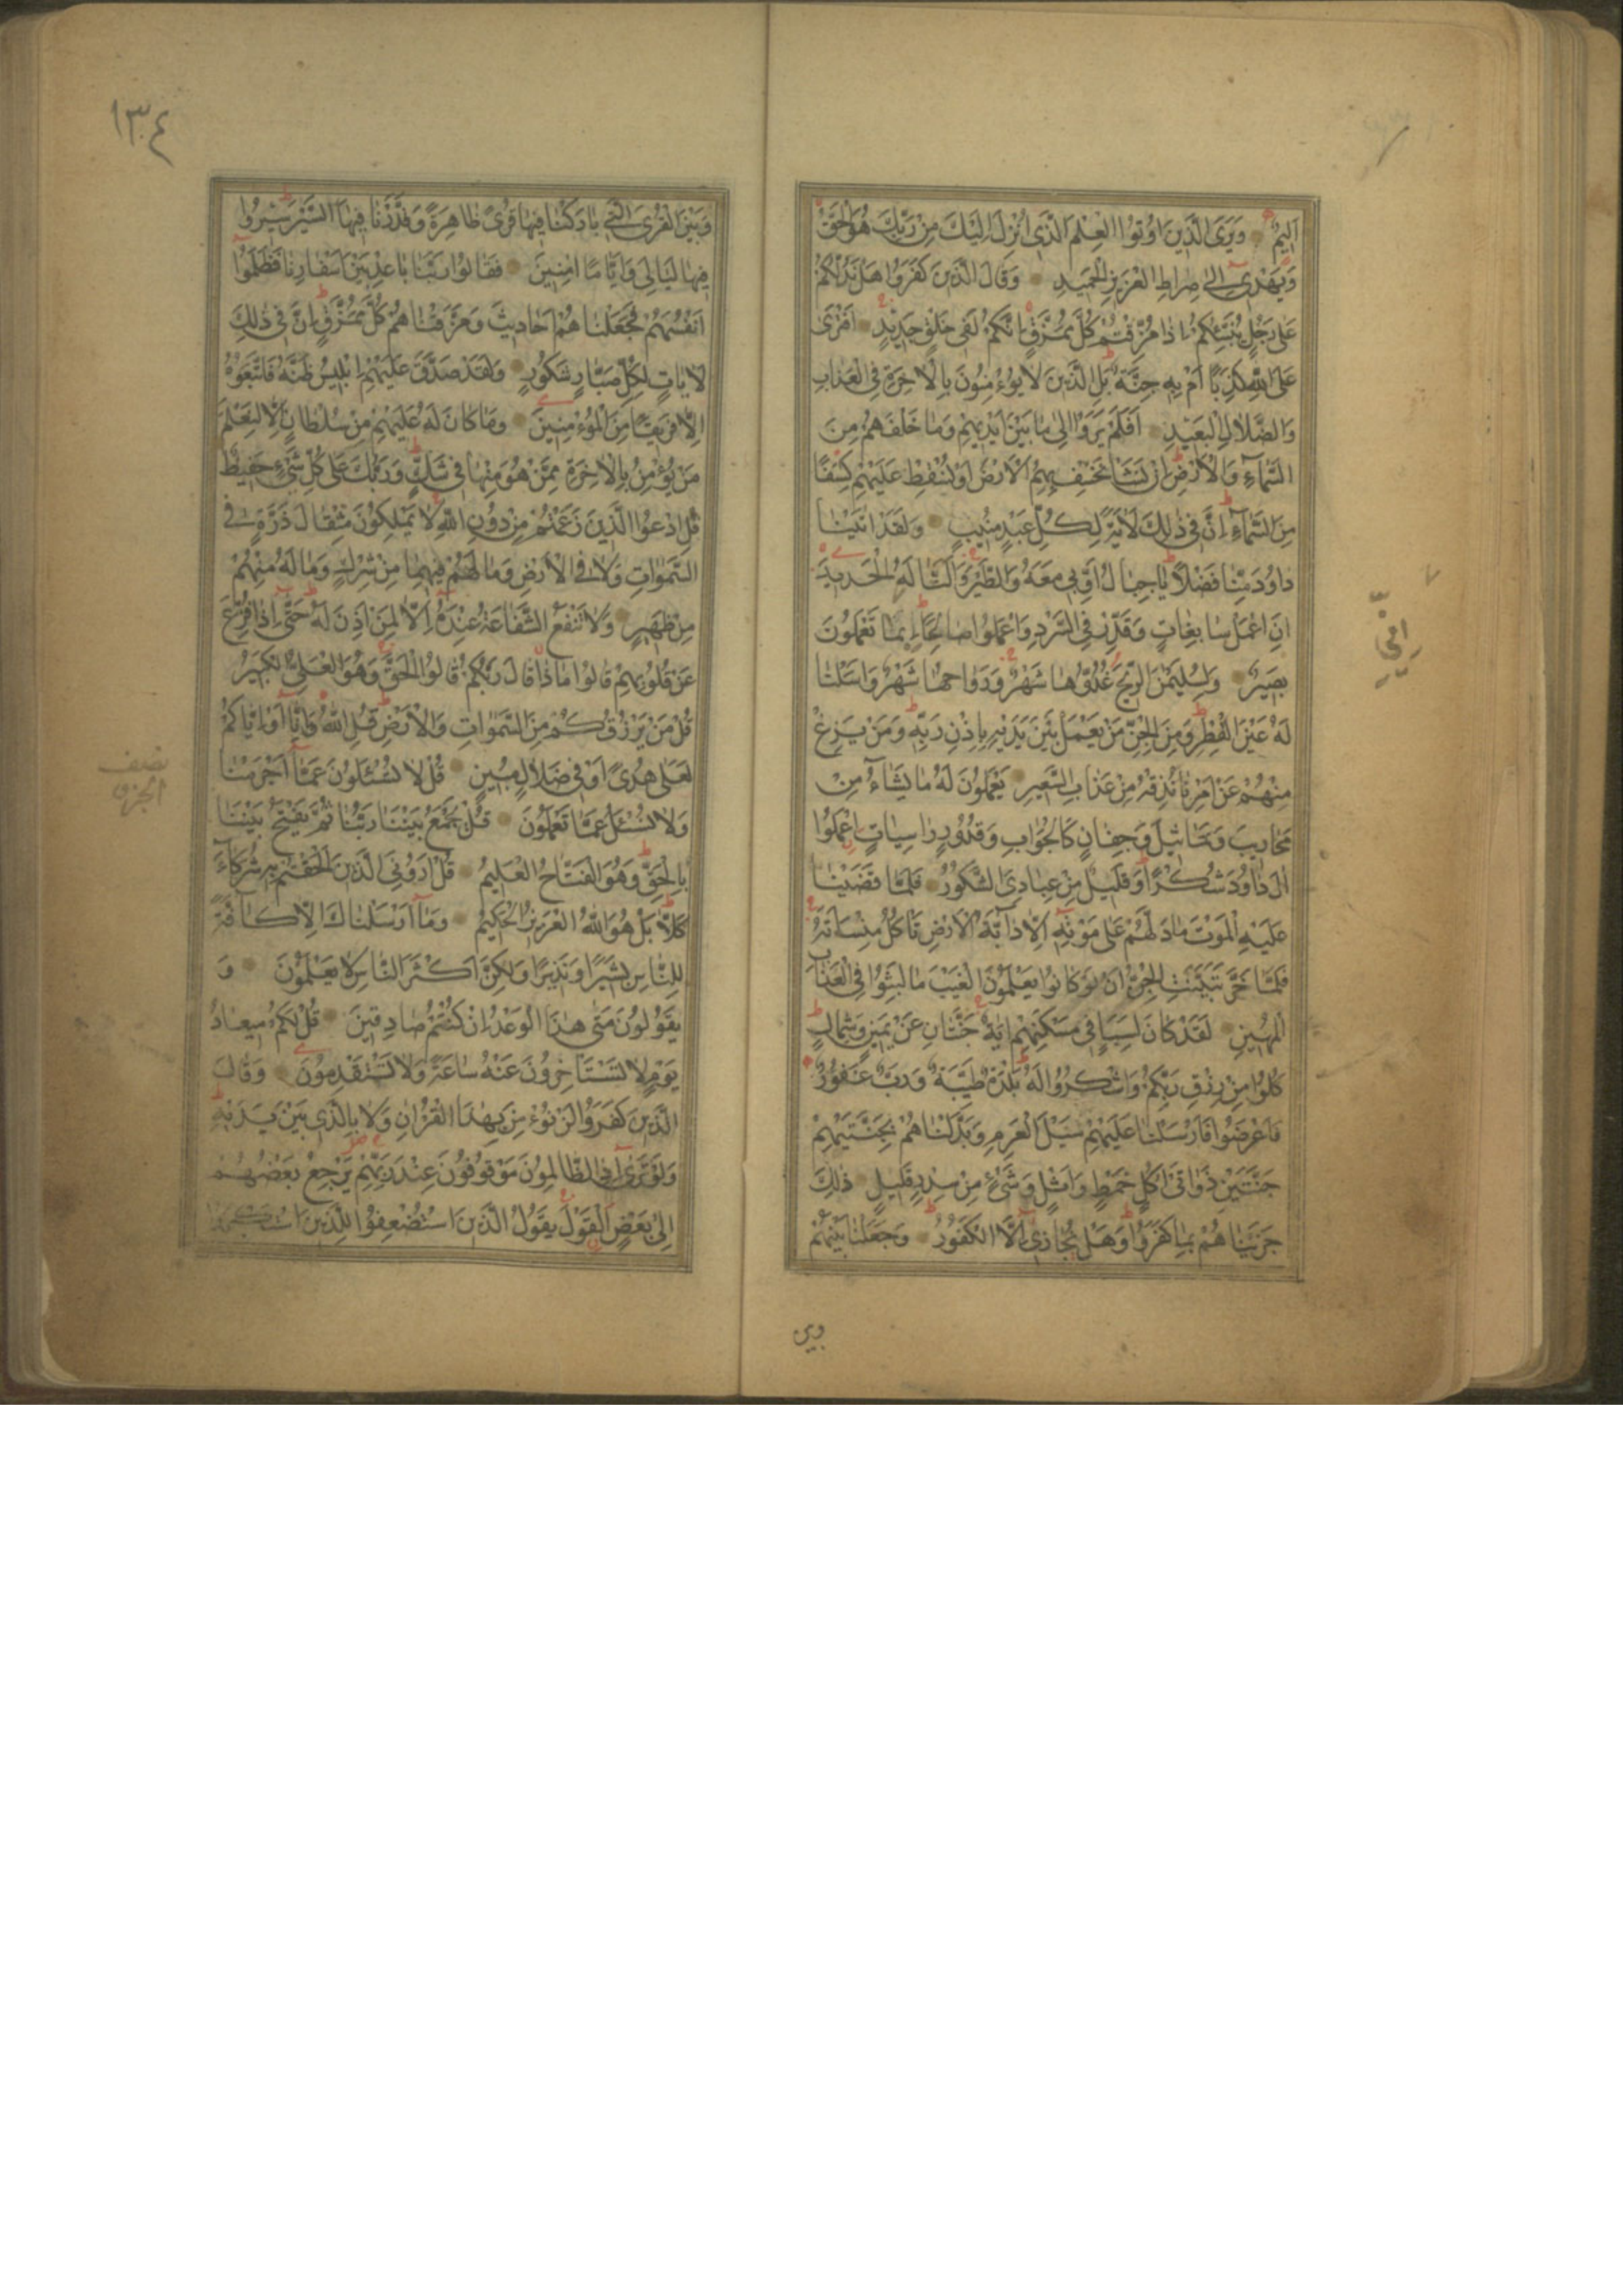 اَلِيمٌ وَيَرَى الَّذِينَ اُوتُوا الْعِلْمَ الَّذِي اُنْزِلَ اِلَيْكَ مِنْ رَبِّكَ هُوَ الْحَقَّ
وَيَهْدِي اِلىٰ صِرَاطِ الْعَزِيزِ الْحَمِيدِ وَقَالَ الَّذِينَ كَفَرُوا هَلْ نَدُلُّكُمْ
عَلىٰ رَجُلٍ يُنَبِّئُكُمْ اِذَا مُزِّقْتُمْ كُلَّ مُمَزَّقٍ اِنَّكُمْ لَفِي خَلْقٍ جَدِيدٍ اَفْتَرىٰ
عَلَى اللّٰهِ كَذِبًا اَمْ بِهِ جِنَّةٌ بَلِ الَّذِينَ لَا يُؤْمِنُونَ بِالْاٰخِرَةِ فِي الْعَذَابِ
وَالضَّلَالِ الْبَعِيدِ اَفَلَمْ يَرَوْا اِلىٰ مَا بَيْنَ اَيْدِيهِمْ وَمَا خَلْفَهُمْ مِنَ
السَّمَاءِ وَالْاَرْضِ اِنْ نَشَأْ نَخْسِفْ بِهِمُ الْاَرْضَ اَوْ نُسْقِطْ عَلَيْهِمْ كِسَفًا
مِنَ السَّمَاءِ اِنَّ فِي ذٰلِكَ لَاٰيَةً لِكُلِّ عَبْدٍ مُنِيبٍ وَلَقَدْ اٰتَيْنَا
دَاوُدَ مِنَّا فَضْلًا يَا جِبَالُ اَوِّبِي مَعَهُ وَالطَّيْرَ وَاَلَنَّا لَهُ الْحَدِيدَ
اَنِ اعْمَلْ سَابِغَاتٍ وَقَدِّرْ فِي السَّرْدِ وَاعْمَلُوا صَالِحًا اِنِّي بِمَا تَعْمَلُونَ
بَصِيرٌ وَلِسُلَيْمٰنَ الرِّيحَ غُدُوُّهَا شَهْرٌ وَرَوَاحُهَا شَهْرٌ وَاَسَلْنَا
لَهُ عَيْنَ الْقِطْرِ وَمِنَ الْجِنِّ مَنْ يَعْمَلُ بَيْنَ يَدَيْهِ بِاِذْنِ رَبِّهِ وَمَنْ يَزِغْ
مِنْهُمْ عَنْ اَمْرِنَا نُذِقْهُ مِنْ عَذَابِ السَّعِيرِ يَعْمَلُونَ لَهُ مَا يَشَاءُ مِنْ
مَحَارِيبَ وَتَمَاثِيلَ وَجِفَانٍ كَالْجَوَابِ وَقُدُورٍ رَاسِيَاتٍ اِعْمَلُوا
اٰلَ دَاوُدَ شُكْرًا وَقَلِيلٌ مِنْ عِبَادِيَ الشَّكُورُ فَلَمَّا قَضَيْنَا
عَلَيْهِ الْمَوْتَ مَا دَلَّهُمْ عَلىٰ مَوْتِهِ اِلَّا دَابَّةُ الْاَرْضِ تَأْكُلُ مِنْسَاَتَهُ
فَلَمَّا خَرَّ تَبَيَّنَتِ الْجِنُّ اَنْ لَوْ كَانُوا يَعْلَمُونَ الْغَيْبَ مَا لَبِثُوا فِي الْعَذَابِ
الْمُهِينِ لَقَدْ كَانَ لِسَبَإٍ فِي مَسْكَنِهِمْ اٰيَةٌ جَنَّتَانِ عَنْ يَمِينٍ وَشِمَالٍ
كُلُوا مِنْ رِزْقِ رَبِّكُمْ وَاشْكُرُوا لَهُ بَلْدَةٌ طَيِّبَةٌ وَرَبٌّ غَفُورٌ
فَاَعْرَضُوا فَاَرْسَلْنَا عَلَيْهِمْ سَيْلَ الْعَرِمِ وَبَدَّلْنَاهُمْ بِجَنَّتَيْهِمْ
جَنَّتَيْنِ ذَوَاتَيْ اُكُلٍ خَمْطٍ وَاَثْلٍ وَشَيْءٍ مِنْ سِدْرٍ قَلِيلٍ ذٰلِكَ
جَزَيْنَاهُمْ بِمَا كَفَرُوا وَهَلْ نُجَازِي اِلَّا الْكَفُورَ وَجَعَلْنَا بَيْنَهُمْ
وبين
١٣٤
وَبَيْنَ الْقُرَى الَّتِي بَارَكْنَا فِيهَا قُرًى ظَاهِرَةً وَقَدَّرْنَا فِيهَا السَّيْرَ سِيرُوا
فِيهَا لَيَالِيَ وَاَيَّامًا اٰمِنِينَ فَقَالُوا رَبَّنَا بَاعِدْ بَيْنَ اَسْفَارِنَا وَظَلَمُوا
اَنْفُسَهُمْ فَجَعَلْنَاهُمْ اَحَادِيثَ وَمَزَّقْنَاهُمْ كُلَّ مُمَزَّقٍ اِنَّ فِي ذٰلِكَ
لَاٰيَاتٍ لِكُلِّ صَبَّارٍ شَكُورٍ وَلَقَدْ صَدَّقَ عَلَيْهِمْ اِبْلِيسُ ظَنَّهُ فَاتَّبَعُوهُ
اِلَّا فَرِيقًا مِنَ الْمُؤْمِنِينَ وَمَا كَانَ لَهُ عَلَيْهِمْ مِنْ سُلْطَانٍ اِلَّا لِنَعْلَمَ
مَنْ يُؤْمِنُ بِالْاٰخِرَةِ مِمَّنْ هُوَ مِنْهَا فِي شَكٍّ وَرَبُّكَ عَلىٰ كُلِّ شَيْءٍ حَفِيظٌ
قُلِ ادْعُوا الَّذِينَ زَعَمْتُمْ مِنْ دُونِ اللّٰهِ لَا يَمْلِكُونَ مِثْقَالَ ذَرَّةٍ فِي
السَّمٰوَاتِ وَلَا فِي الْاَرْضِ وَمَا لَهُمْ فِيهِمَا مِنْ شِرْكٍ وَمَا لَهُ مِنْهُمْ
مِنْ ظَهِيرٍ وَلَا تَنْفَعُ الشَّفَاعَةُ عِنْدَهُ اِلَّا لِمَنْ اَذِنَ لَهُ حَتّٰى اِذَا فُزِّعَ
عَنْ قُلُوبِهِمْ قَالُوا مَاذَا قَالَ رَبُّكُمْ قَالُوا الْحَقَّ وَهُوَ الْعَلِيُّ الْكَبِيرُ
قُلْ مَنْ يَرْزُقُكُمْ مِنَ السَّمٰوَاتِ وَالْاَرْضِ قُلِ اللّٰهُ وَاِنَّا اَوْ اِيَّاكُمْ
لَعَلىٰ هُدًى اَوْ فِي ضَلَالٍ مُبِينٍ قُلْ لَا تُسْئَلُونَ عَمَّا اَجْرَمْنَا
وَلَا نُسْئَلُ عَمَّا تَعْمَلُونَ قُلْ يَجْمَعُ بَيْنَنَا رَبُّنَا ثُمَّ يَفْتَحُ بَيْنَنَا
بِالْحَقِّ وَهُوَ الْفَتَّاحُ الْعَلِيمُ قُلْ اَرُونِيَ الَّذِينَ اَلْحَقْتُمْ بِهِ شُرَكَاءَ
كَلَّا بَلْ هُوَ اللّٰهُ الْعَزِيزُ الْحَكِيمُ وَمَا اَرْسَلْنَاكَ اِلَّا كَافَّةً
لِلنَّاسِ بَشِيرًا وَنَذِيرًا وَلٰكِنَّ اَكْثَرَ النَّاسِ لَا يَعْلَمُونَ وَ
يَقُولُونَ مَتٰى هٰذَا الْوَعْدُ اِنْ كُنْتُمْ صَادِقِينَ قُلْ لَكُمْ مِيعَادُ
يَوْمٍ لَا تَسْتَأْخِرُونَ عَنْهُ سَاعَةً وَلَا تَسْتَقْدِمُونَ وَقَالَ
الَّذِينَ كَفَرُوا لَنْ نُؤْمِنَ بِهٰذَا الْقُرْاٰنِ وَلَا بِالَّذِي بَيْنَ يَدَيْهِ
وَلَوْ تَرٰى اِذِ الظَّالِمُونَ مَوْقُوفُونَ عِنْدَ رَبِّهِمْ يَرْجِعُ بَعْضُهُمْ
اِلىٰ بَعْضٍ الْقَوْلَ يَقُولُ الَّذِينَ اسْتُضْعِفُوا لِلَّذِينَ اسْتَكْبَرُوا
نصف
الجزء